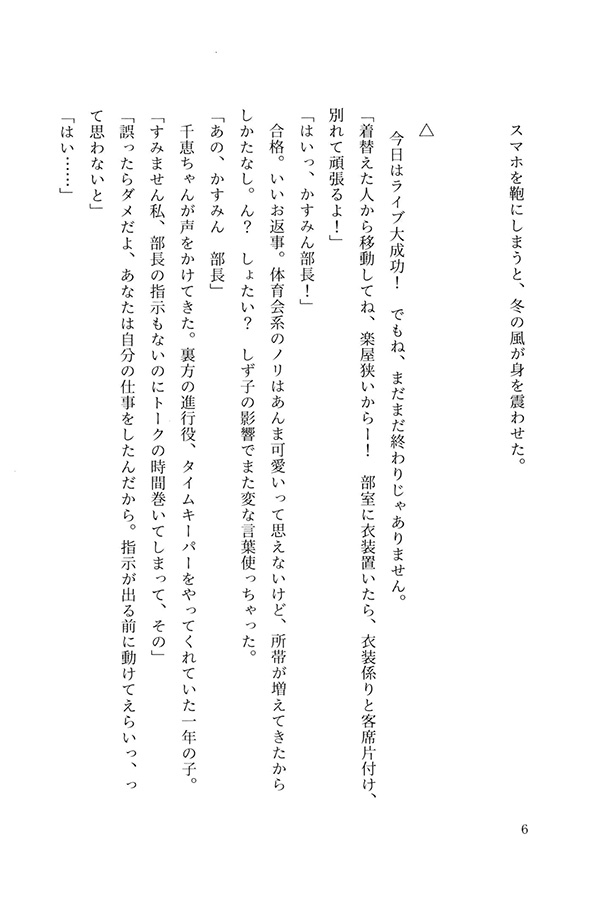 スマホを鞄にしまうと、冬の風が身を震わせた。
△
今日はライブ大成功！　でもね、まだまだ終わりじゃありません。
「着替えた人から移動してね、楽屋狭いからー！　部室に衣装置いたら、衣装係りと客席片付け、
別れて頑張るよ！」
「はいっ、かすみん部長！」
合格。いいお返事。体育会系のノリはあんま可愛いって思えないけど、所帯が増えてきたから
しかたなし。ん？　しょたい？　しず子の影響でまた変な言葉使っちゃった。
「あの、かすみん　部長」
千恵ちゃんが声をかけてきた。裏方の進行役、タイムキーパーをやってくれていた一年の子。
「すみません私、部長の指示もないのにトークの時間巻いてしまって、その」
「誤ったらダメだよ、あなたは自分の仕事をしたんだから。指示が出る前に動けてえらいっ、っ
て思わないと」
「はい……」
6